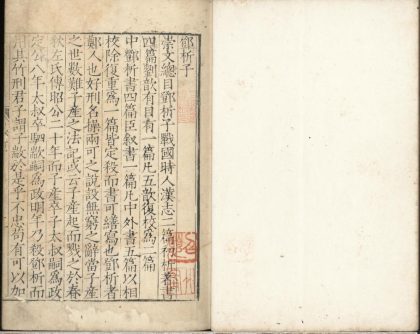 鄧析子
崇文總目鄧析子戰國時人漢志二篇初析著書
四篇劉歆有目有一篇凡五歆復校爲二篇
中鄧析書四篇臣敘書一篇凡中外書五篇以相
校除復重爲一篇皆定殺而書可繕寫也鄧析者
鄭人也好刑名操兩可之說設無窮之辭當子產
之世數難子產之法記或云子產起而戮之於春
秋左氏傳昭公二十年而子產卒子太叔嗣爲政
定公八年太叔卒駟歂嗣爲政明年乃殺鄧析而
用其竹刑君子謂子歂於是乎不忠苟有可以加